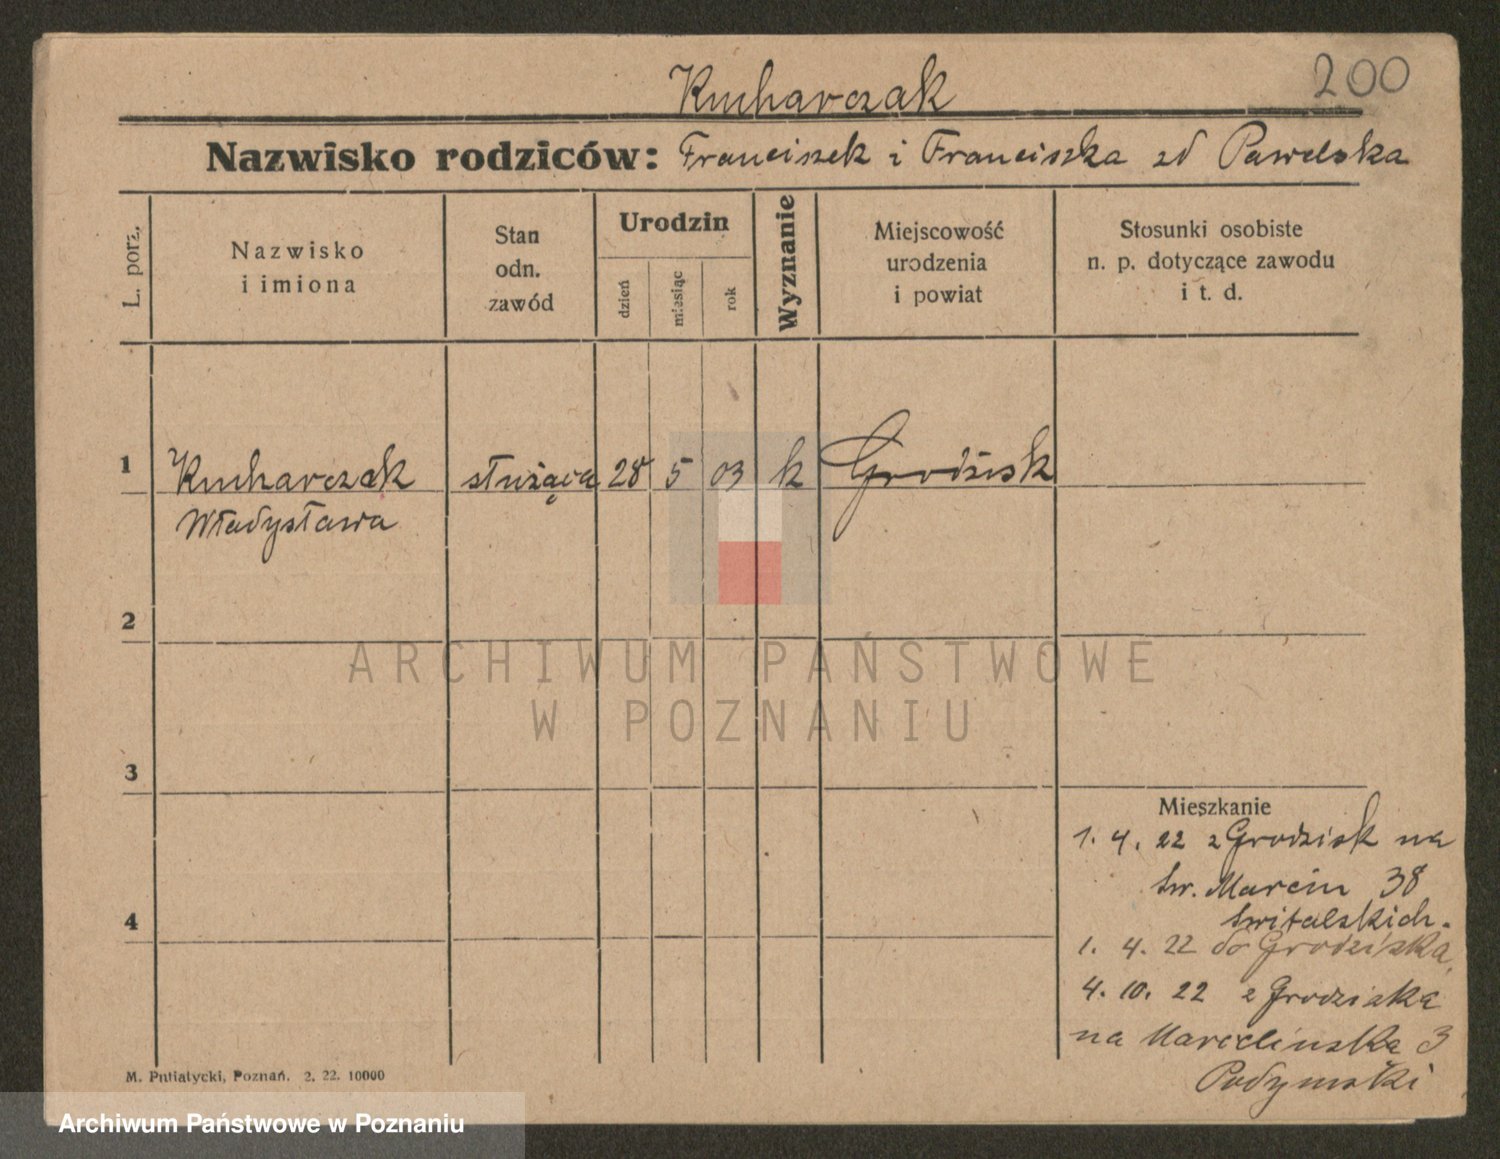 200
Kucharczak
Nazwisko rodziców: Franciszek i Franciszka zd Pawelska
L. porz.
Nazwisko
i imiona
Stan
odn.
zawód
Urodzin
dzień
miesiąc
rok
Wyznanie
Miejscowość
urodzenia
i powiat
Stosunki osobiste
n. p. dotyczące zawodu
i t. d.
1 Kucharczak służąca 28 5 03 k Grodzisk
Władysława
2
ARCHIWUM PAŃSTWOWE
W POZNANIU
3
Mieszkanie
1. 4. 22 z Grodzisk na
św. Marcin 38
Świtalskich.
4
1. 4. 22 do Grodziska,
4. 10. 22 z Grodziska
na Marcelińska 3
M. Putiatycki, Poznań. 2. 22. 10000
Archiwum Państwowe w Poznaniu